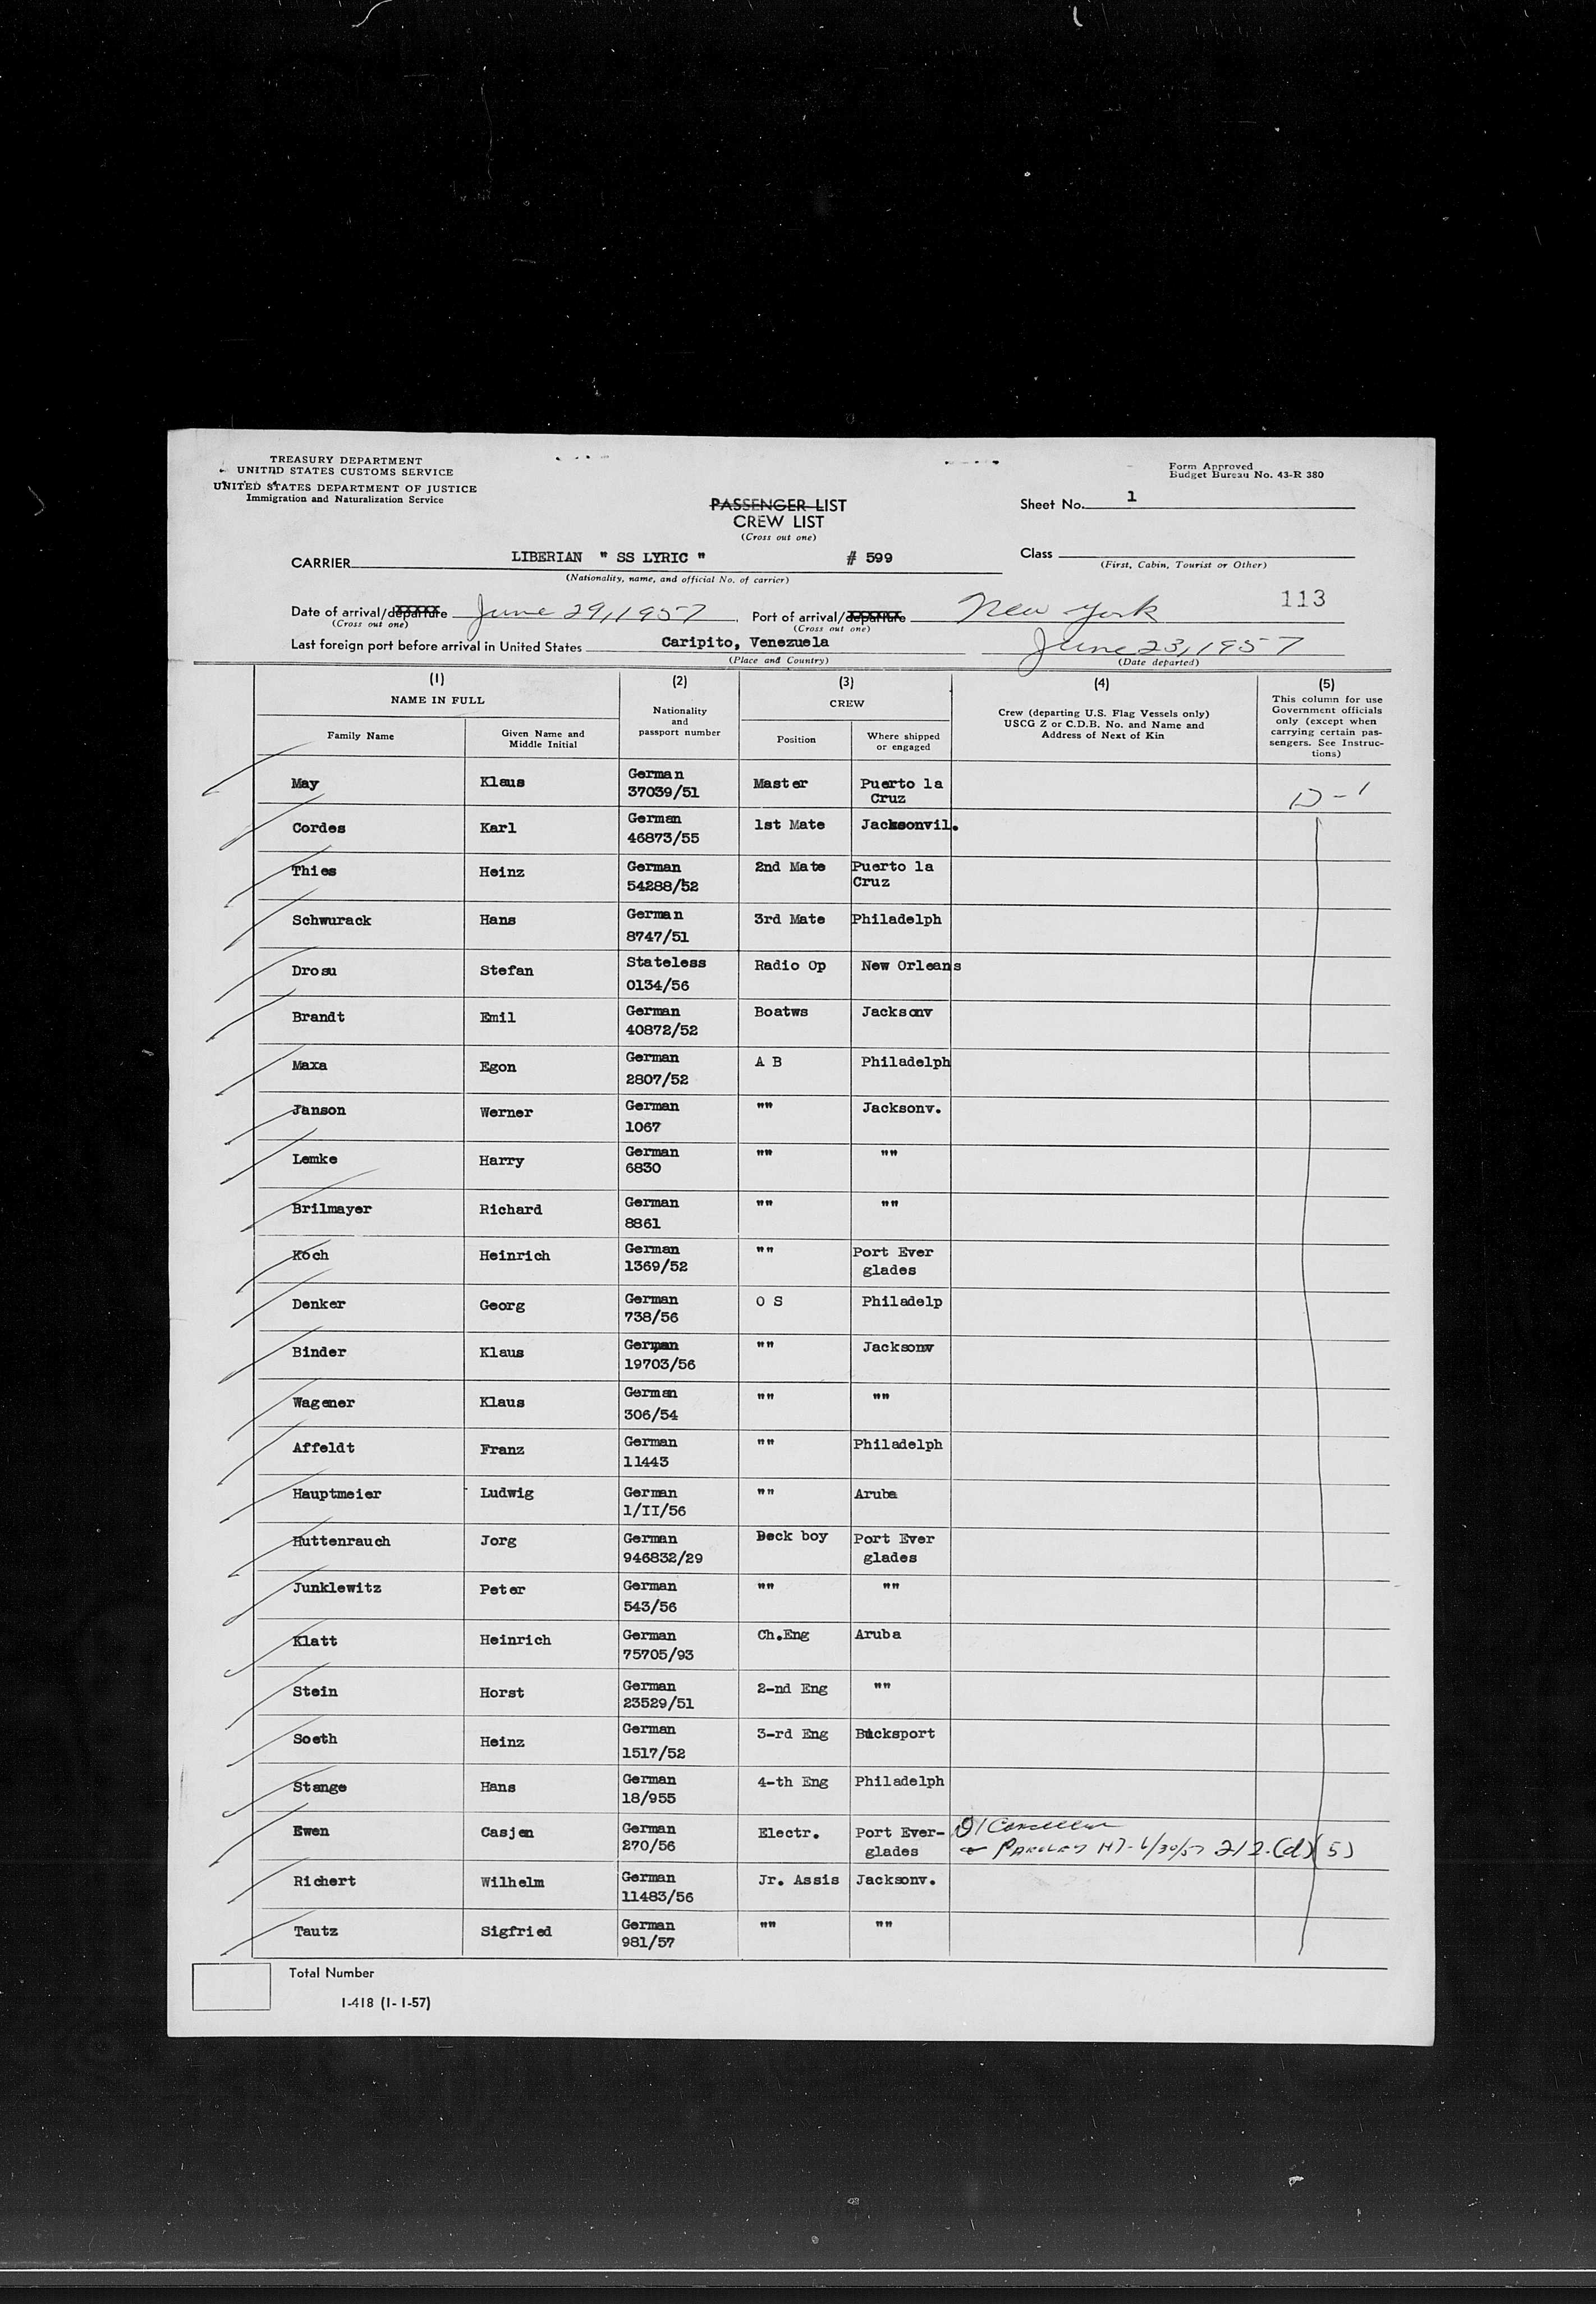 TREASURY DEPARTMENT
UNITED STATES CUSTOMS SERVICE
UNITED STATES DEPARTMENT OF JUSTICE
Immigration and Naturalization Service
Form Approved
Budget Bureau No. 43-R 380
PASSENGER LIST
CREW LIST
(Cross out one)
Sheet No. 1
CARRIER LIBERIAN " SS LYRIC " # 599
(Nationality, name, and official No. of carrier)
Class
(First, Cabin, Tourist or Other)
113
Date of arrival/departure June 29, 1957 . Port of arrival/departure New York
(Cross out one) (Cross out one)
Last foreign port before arrival in United States Caripito, Venezuela June 23, 1957
(Place and Country) (Date departed)
(1) (2) (3) (4) (5)
NAME IN FULL Nationality and passport number CREW Crew (departing U.S. Flag Vessels only) USCG Z or C.D.B. No. and Name and Address of Next of Kin This column for use Government officials only (except when carrying certain passengers. See Instructions)
Family Name Given Name and Middle Initial Position Where shipped or engaged
May Klaus German 37039/51 Master Puerto la Cruz D-1
Cordes Karl German 46873/55 1st Mate Jacksonvil.
Thies Heinz German 54288/52 2nd Mate Puerto la Cruz
Schwurack Hans German 8747/51 3rd Mate Philadelph
Drosu Stefan Stateless 0134/56 Radio Op New Orleans
Brandt Emil German 40872/52 Boatws Jacksonv
Maxa Egon German 2807/52 A B Philadelph
Janson Werner German 1067 "" Jacksonv.
Lemke Harry German 6830 "" ""
Brilmayer Richard German 8861 "" ""
Koch Heinrich German 1369/52 "" Port Ever glades
Denker Georg German 738/56 O S Philadelp
Binder Klaus German 19703/56 "" Jacksonv
Wagener Klaus German 306/54 "" ""
Affeldt Franz German 11443 "" Philadelph
Hauptmeier Ludwig German 1/II/56 "" Aruba
Huttenrauch Jorg German 946832/29 Deck boy Port Ever glades
Junklewitz Peter German 543/56 "" ""
Klatt Heinrich German 75705/93 Ch.Eng Aruba
Stein Horst German 23529/51 2-nd Eng ""
Soeth Heinz German 1517/52 3-rd Eng Bucksport
Stange Hans German 18/955 4-th Eng Philadelph
Ewen Casjen German 270/56 Electr. Port Ever-glades 6/30/57 212.(d)(5)
Richert Wilhelm German 11483/56 Jr. Assis Jacksonv.
Tautz Sigfried German 981/57 "" ""
Total Number
I-418 (1-1-57)